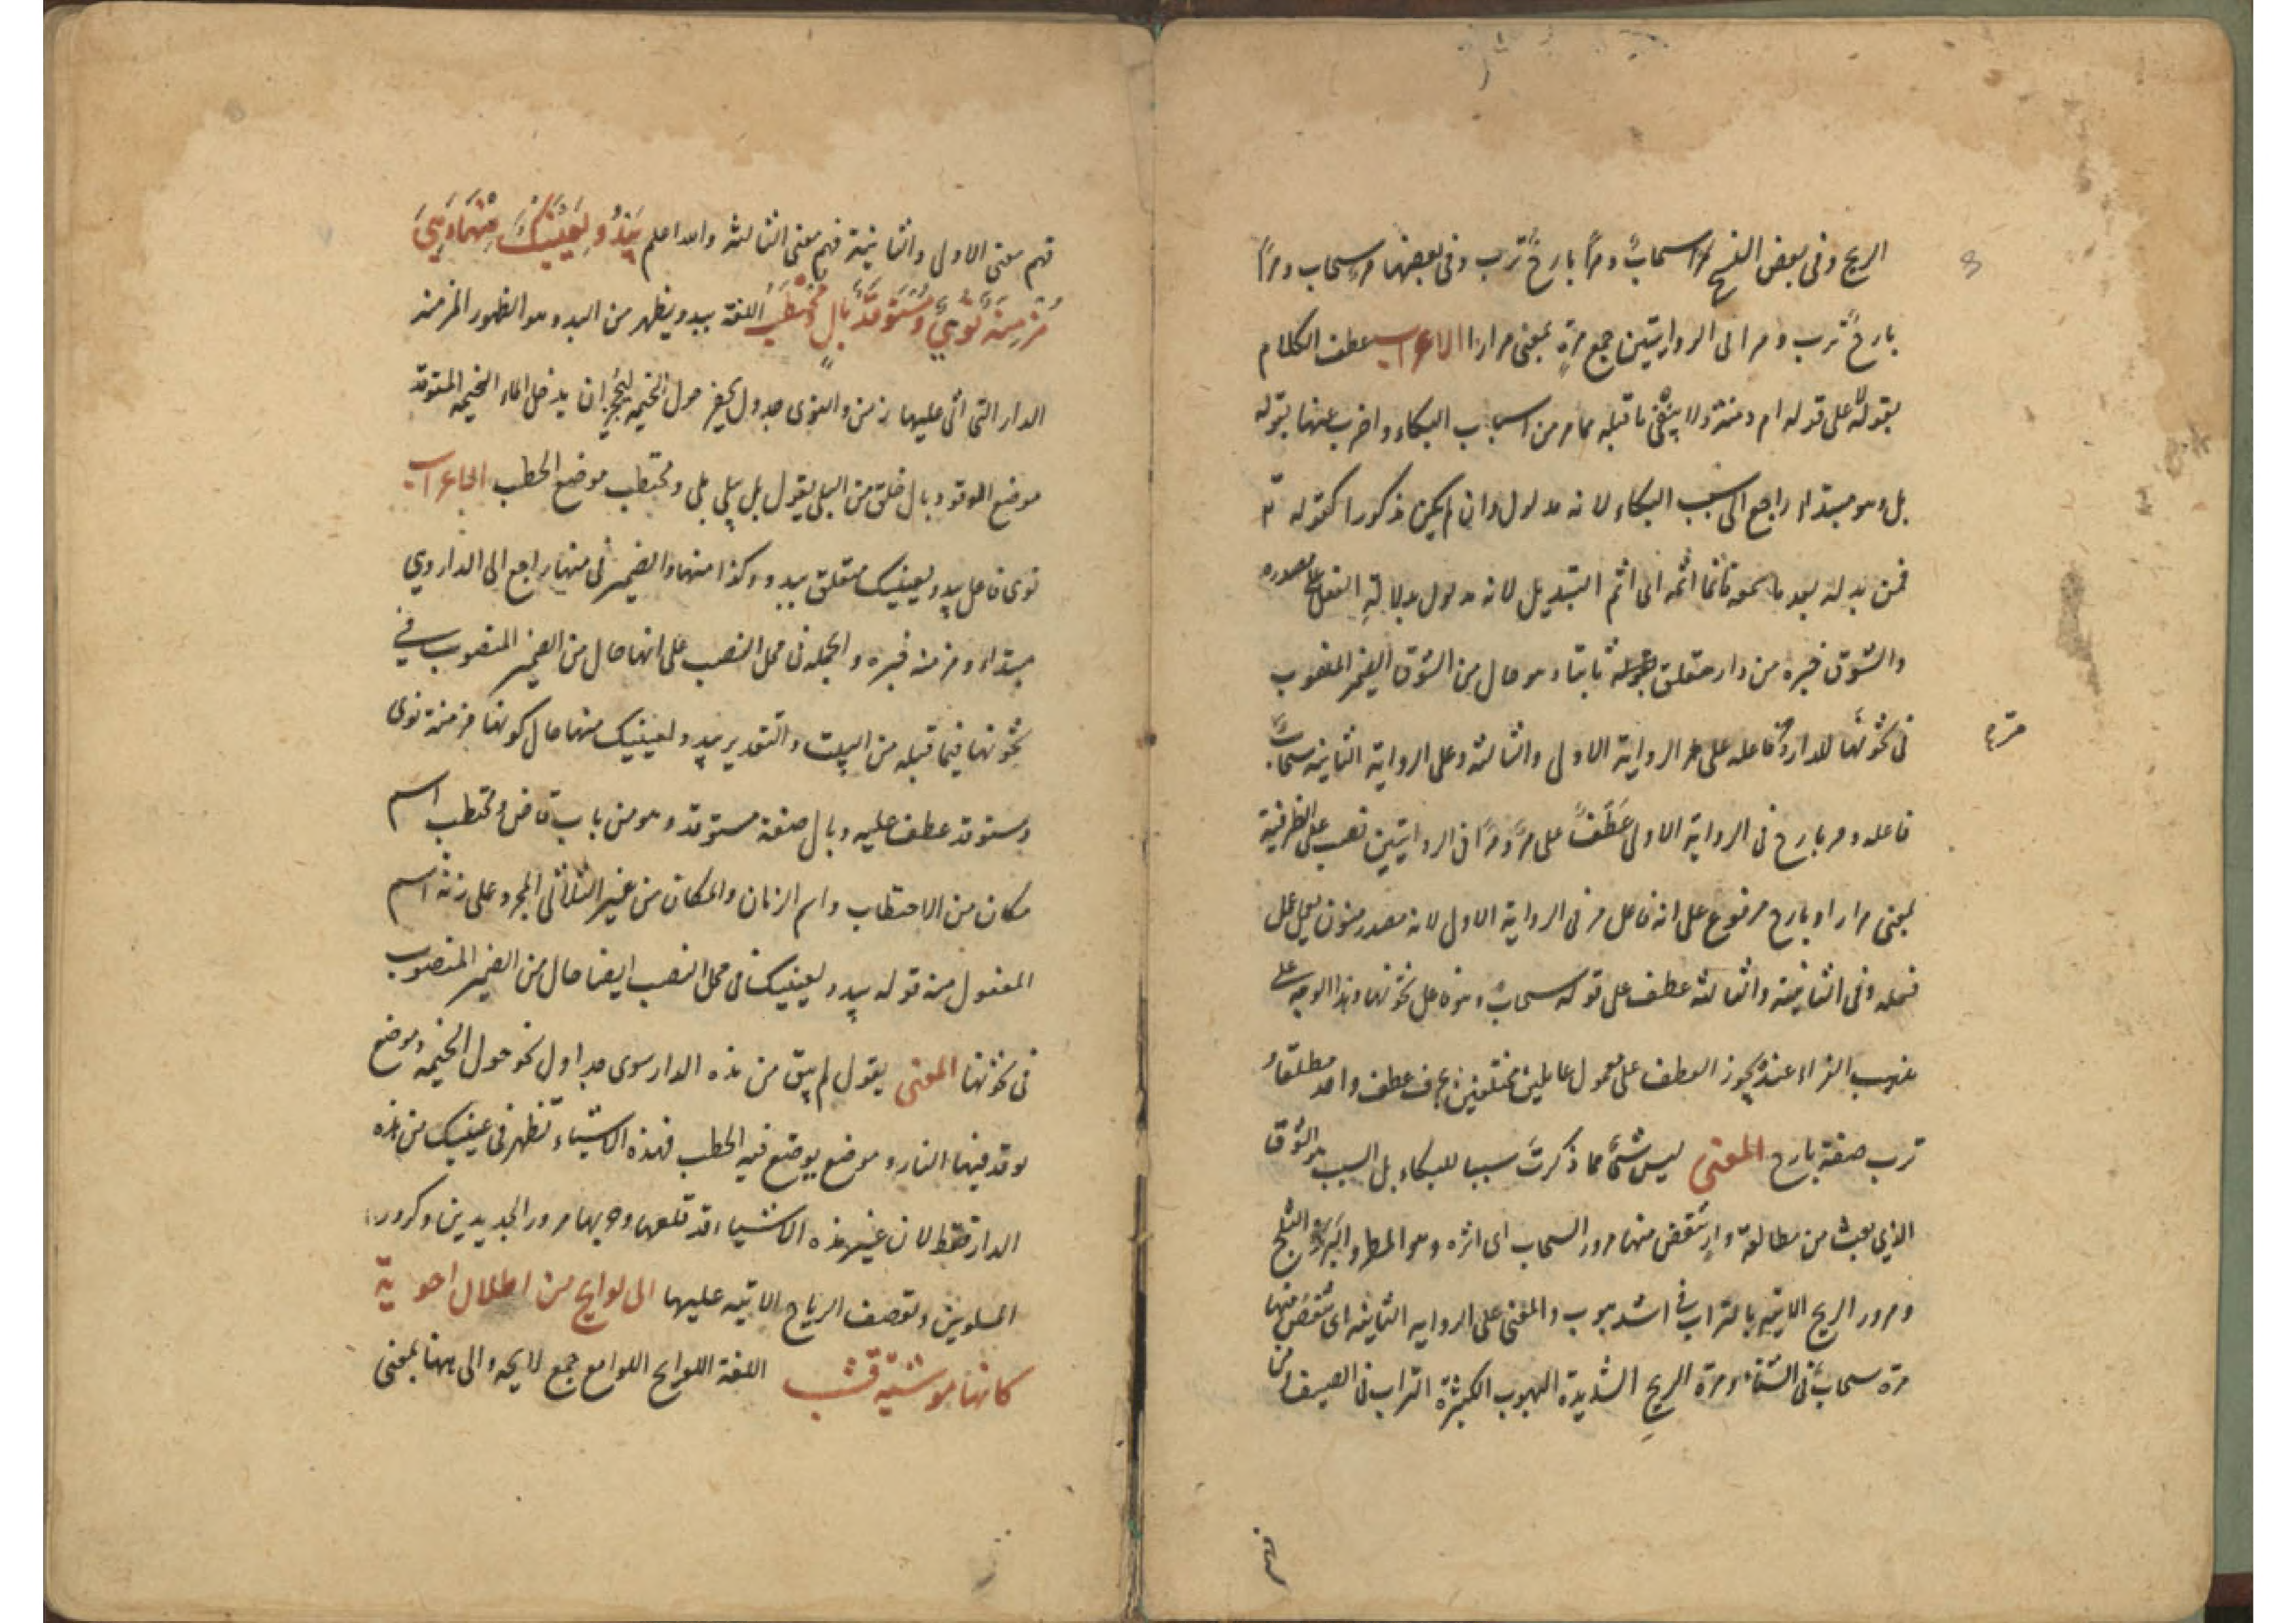 الريح وفى بعض النسخ مرا سحابٌ ومرًا بارحٌ ترب وفى بعضها مر سحاب ومرًا
بارحٌ ترب ومرا لى الروايتين جمع مرةٍ بمعنى مرارا الاعراب عطف الكلام
بقوله على قوله ام دمنة ولا ينفى ما قبله مما مر من اسباب البكاء واضرب عنها بقوله
بل وهو مبتداء راجع الى سبب البكاء لانه مدلول وان لم يكن مذكورا كقوله تع
فمن بدله بعد ما سمعه فانما اثمه اى اثم التبديل لانه مدلول بدلالة الفعل على مصدره
والشوق خبره من دار متعلق بقوله ثابتا وهو حال من الشوق الضمير المنصوب
فى تخونها للدار وفاعله على مر الرواية الاولى والثالثة وعلى الرواية الثانية سحابٌ
مرّة
فاعله ومر بارح فى الرواية الاولى عَطفً على مرّ ومرًا فى الروايتين نصب على الظرفية
بمعنى مرارا وبارح مرفوع على انه فاعل مر فى الرواية الاولى لانه مصدر منون يعمل عمل
فعله وفى الثانية والثالثة عطف على قوله سحابٌ وهو فاعل تخونها وهذا الوجه على
مذهب الفراء عنده يجوز العطف على معمول عاملين مختلفين بحرف عطف واحد مطلقا و
ترب صفة بارح المعنى ليس شئ مما ذكرتَ سببا للبكاء بل السبب هو الشوق
الذي يعث من مطالعة دارٍ تنقض منها مرور السحاب اى اثره وهو المطر والبَرَد والثلج
ومرور الريح الاتية بالتراب فى اشد هبوب والمعنى على الرواية الثانية اى تنقص منها
مرة سحاب فى الشتاء ومرة الريح الشديدة الهبوب الكثيرة التراب فى الصيف ومن
فهم معنى الاولى والثانية فهم معنى الثالثة والله اعلم يَبْدُو لِعَيْنَيْكَ مِنْهَا وَهِيَ
مُزْمِنَةٌ نُؤْيٌ وَمُسْتَوْقَدٌ بَالٍ وَمُحْتَطَبُ اللغة يبدو يظهر من البدو وهو الظهور المزمنة
الدار التى اتى عليها زمن والنؤى جدول يحفر حول الخيمة ليحجز ان يدخل الماء الخيمة المستوقد
موضع الوقود وبال خلق من البلى يقول بلى يبلى بلى ومحتطب موضع الحطب الاعراب
نوى فاعل يبدو ولعينيك متعلق بيبدو وكذا منها والضمير فى منها راجع الى الدار وهى
مبتداء ومزمنة خبره والجملة فى محل النصب على انها حال من الضمير المنصوب فى
تخونها فيما قبله من البيت والتقدير يبدو لعينيك منها حال كونها مزمنة نوى
ومستوقد عطف عليه وبال صفة مستوقد وهو من باب قاض ومحتطب اسم
مكان من الاحتطاب واسم الزمان والمكان من غير الثلاثى المجرد على زنة اسم
المفعول منه قوله يبدو لعينيك فى محل النصب ايضا حال من الضمير المنصوب
فى تخونها المعنى يقول لم يبق من هذه الدار سوى جداول نحو حول الخيمة وموضع
يوقد فيها النار وموضع يوضع فيه الحطب فهذه الاشياء تظهر فى عينيك من هذه
الدار فقط لان غير هذه الاشياء قد قلعها مرور الجديدين وكرور
الملوين وتعصف الرياح الاتية عليها الى لوايح من اطلال احوية
كانها موشية قشب اللغة اللوايح اللوامع جمع لايحه والى ههنا بمعنى